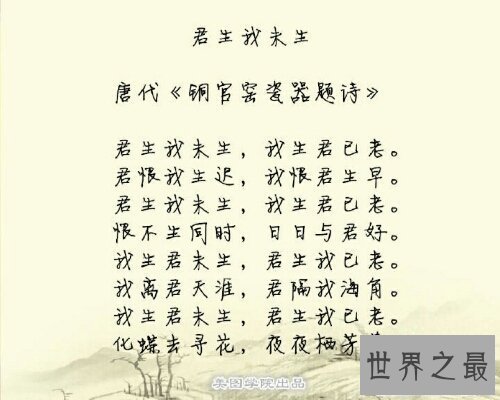 君生我未生
唐代《铜官窑瓷器题诗》
君生我未生，我生君已老。
君恨我生迟，我恨君生早。
君生我未生，我生君已老。
恨不生同时，日日与君好。
我生君未生，君生我已老。
我离君天涯，君隔我海角。
我生君未生，君生我已老。
化蝶去寻花，夜夜栖芳
世界之最
美图学院出品